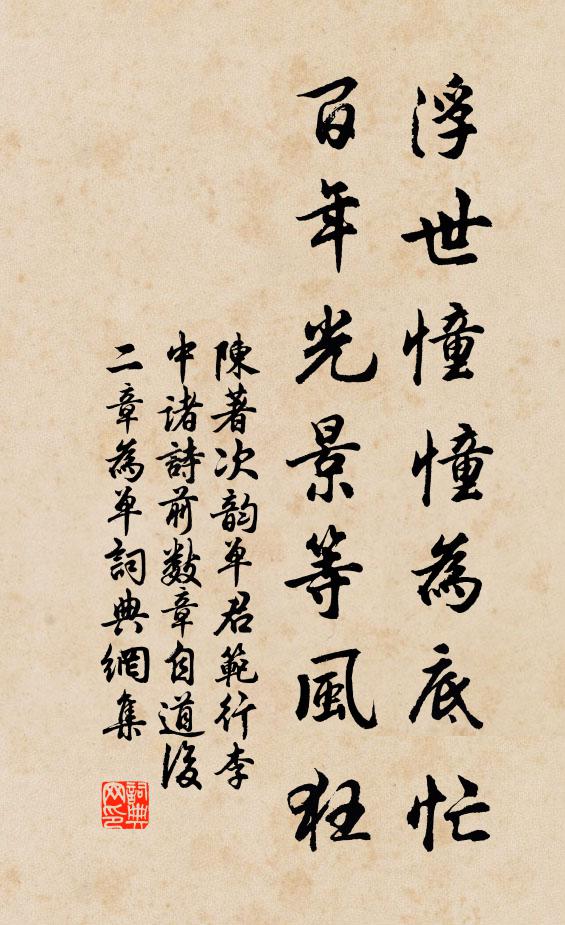 浮世憧憧為底忙
百年光景等風狂
陳著次韵单君範行李
中诸詩前数章自道後
二章為单詞典網集
詞典网印